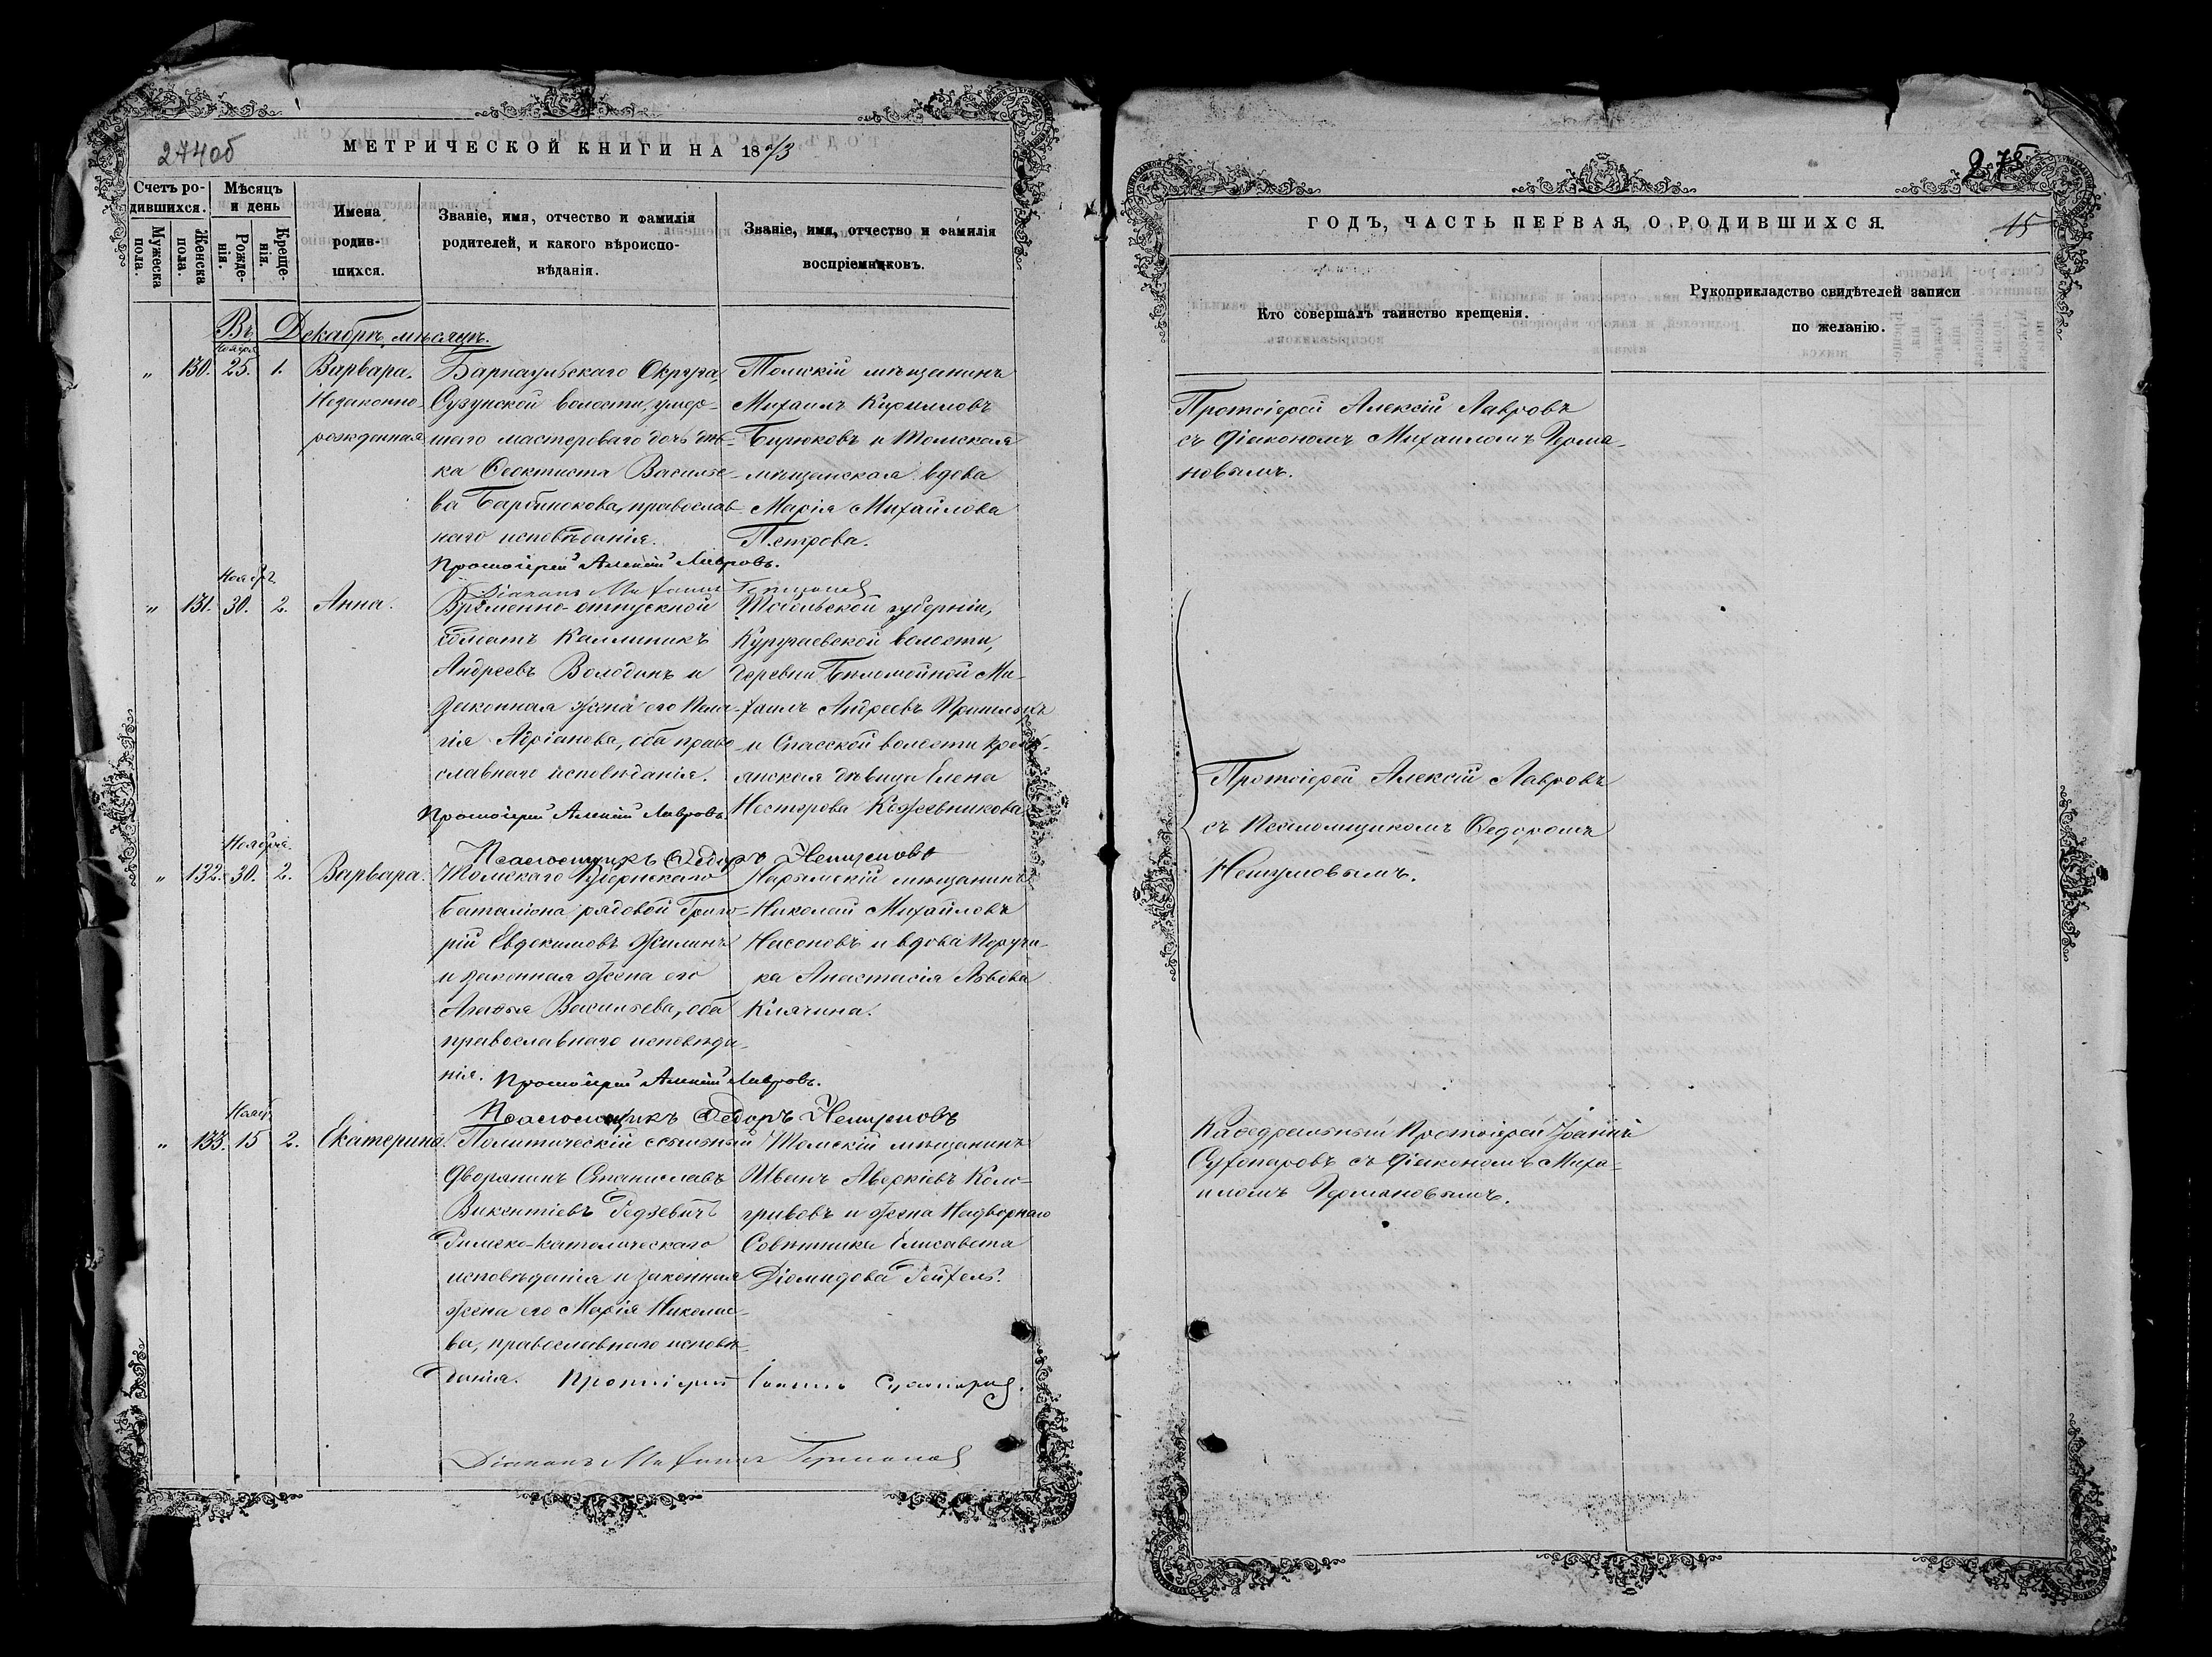 274об
МЕТРИЧЕСКОЙ КНИГИ НА 1873
Счетъ ро-
дившихся.
Мужеска пола.
Женска пола.
Мѣсяцъ
и день
Рожде-
нія.
Креще-
нія.
Имена
родив-
шихся.
Званіе, имя, отчество и фамилія
родителей, и какого вѣроиспо-
вѣданія.
Званіе, имя, отчество и фамилія
воспріемниковъ.
Въ Декабрѣ мѣсяцѣ.
Ноября
" 130. 25. 1. Варвара.
Незаконно-
рожденная
Барнаульскаго Округа,
Сузунской волости, умер-
шаго мастероваго дочь дѣв-
ка Феоктиста Василье-
ва Барбинокова, православ-
наго исповѣданія.
Томскій мѣщанинъ
Михаилъ Кирилловъ
Бирюковъ и Томская
мѣщанская вдова
Марія Михайлова
Петрова.
Протоіерей Алексій Лавровъ.
Діаконъ Михаилъ Германовъ
Ноябр.
" 131. 30. 2. Анна.
Временно-отпускной
солдатъ Каллиникъ
Андреевъ Володинъ и
законная жена его Пела-
гія Адріанова, оба право-
славнаго исповѣданія.
Тобольской губерніи,
волости,
деревни Ми-
хаилъ Андреевъ
и Спасской волости крестъ-
янская дѣвица Елена
Нестерова Кожевникова
Протоіерей Алексій Лавровъ
Псаломщикъ Ѳедоръ
Ноября.
" 132. 30. 2. Варвара.
Томскаго Губернскаго
Баталіона рядовой Григо-
рій Евдокимовъ Жилинъ
и законная жена его
Агафья Васильева, оба
православнаго исповѣда-
нія.
Нарымскій мѣщанинъ
Николай Михайловъ
Насоновъ и вдова Поручи-
ка Анастасія Львова
Клячина.
Протоіерей Алексій Лавровъ.
Псаломщикъ Ѳедоръ
Нояб.
" 133. 15 2. Екатерина.
Политическій ссыльный
дворянинъ Станиславъ
Викентіевъ Редзевичъ
Римско-католическаго
исповѣданія и законная
жена его Марія Николае-
ва, православнаго исповѣ-
данія.
Томскій мѣщанинъ
Иванъ Аверкіевъ Коло-
гривовъ и жена Надворнаго
Совѣтника Елисавета
Діомидова Гейхель.
Протоіерей Іоаннъ Сухопаровъ.
Діаконъ Михаилъ Германовъ
275
ГОДЪ, ЧАСТЬ ПЕРВАЯ, О РОДИВШИХСЯ.
15
Кто совершалъ таинство крещенія.
Рукоприкладство свидѣтелей записи
по желанію.
Протоіерей Алексій Лавровъ
съ Діакономъ Михаиломъ Герма-
новымъ.
Протоіерей Алексій Лавровъ
съ Псаломщикомъ Ѳедоромъ
Каѳедральный Протоіерей Іоаннъ
Сухопаровъ съ Діакономъ Миха-
иломъ Германовымъ.